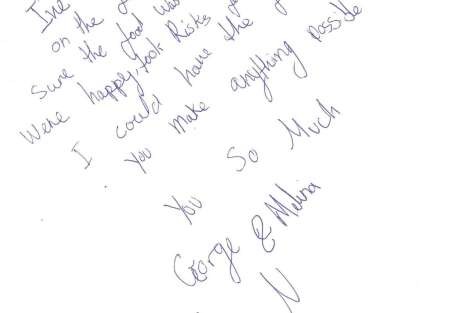 on the
Sure the food was
Were happy, took Risks
I could have the
You make anything possible
You So Much
George & Melissa
N